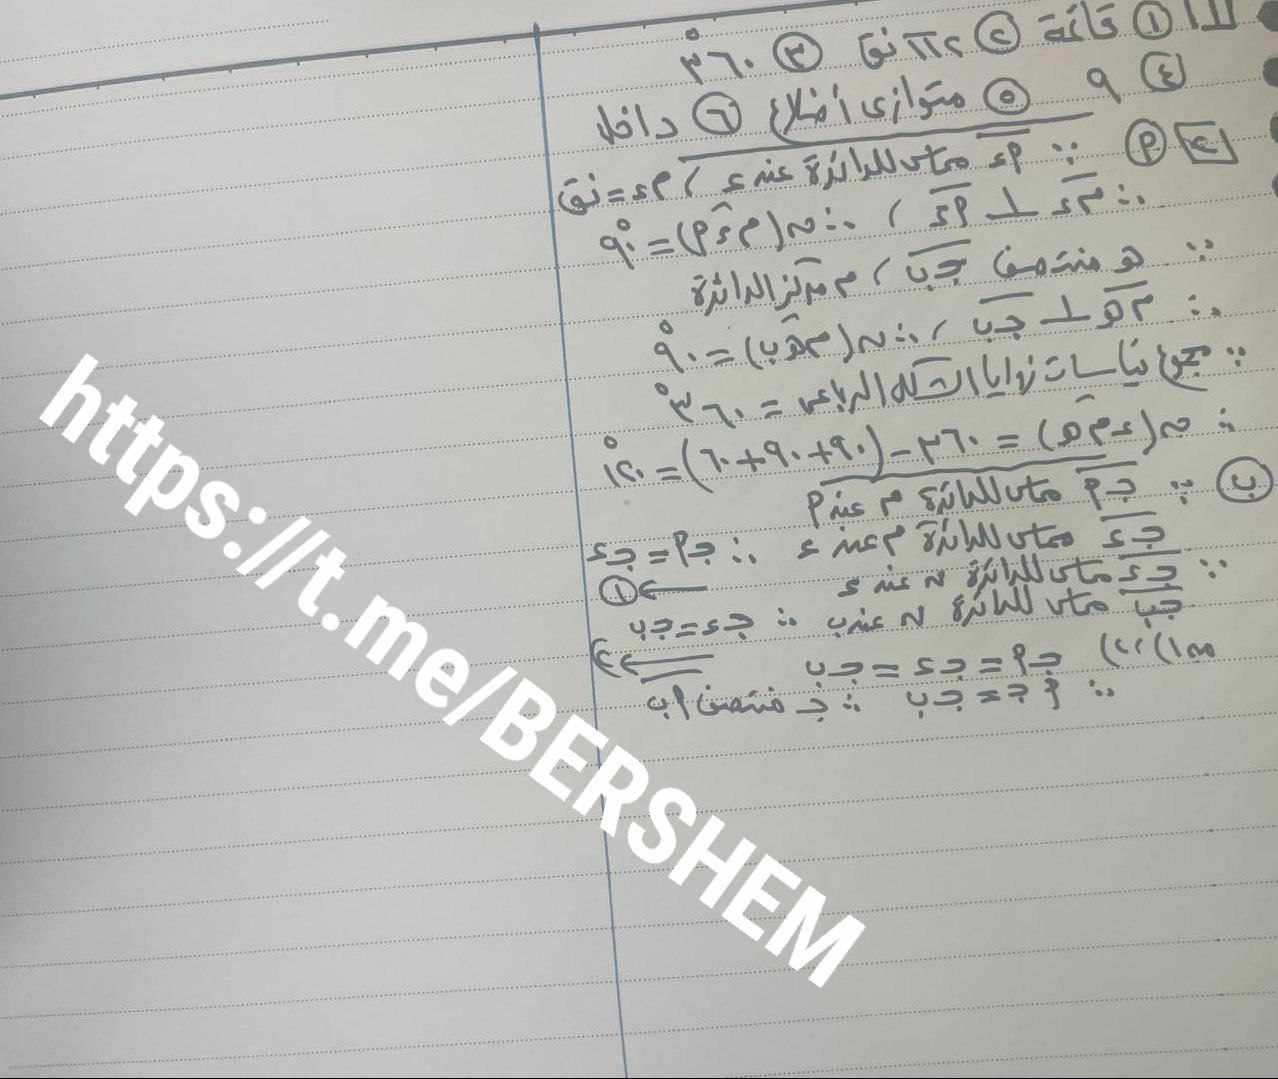 ١ ① قائمة ② ٢ π نق ③ ٣٦٠°
④ ٩ ⑤ متوازى أضلاع ⑥ داخل
٢ أ ∵ أء مماس للدائرة عند ء ، م ء = نق
∴ م ء ⊥ أ ء ، ∴ ن (م ء أ) = ٩٠°
∵ هـ منتصف جـ ب ، م مركز الدائرة
∴ م هـ ⊥ جـ ب ، ∴ ن (م هـ ب) = ٩٠°
∵ مجموع قياسات زوايا الشكل الرباعى = ٣٦٠°
∴ ن (ء م هـ) = ٣٦٠ - (٩٠ + ٩٠ + ٦٠) = ١٢٠°
ب ∵ جـ أ مماس للدائرة م عند أ
جـ ء مماس للدائرة م عند ء ∴ جـ أ = جـ ء
← ①
∵ جـ ء مماس للدائرة ن عند ء
جـ ب مماس للدائرة ن عند ب ∴ جـ ء = جـ ب
← ٢
من ١) ، ٢) جـ أ = جـ ء = جـ ب
∴ أ جـ = جـ ب ∴ جـ منتصف أ ب
https://t.me/BERSHEM